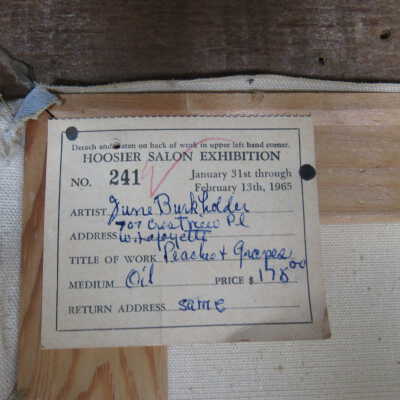 Detach and fasten on back of work in upper left hand corner.
HOOSIER SALON EXHIBITION
NO. 241 January 31st through
February 13th, 1965
ARTIST June Burkholder
707 Crestview Pl
ADDRESS W. Lafayette
TITLE OF WORK Peaches + Grapes
MEDIUM Oil PRICE $ 175.00
RETURN ADDRESS same